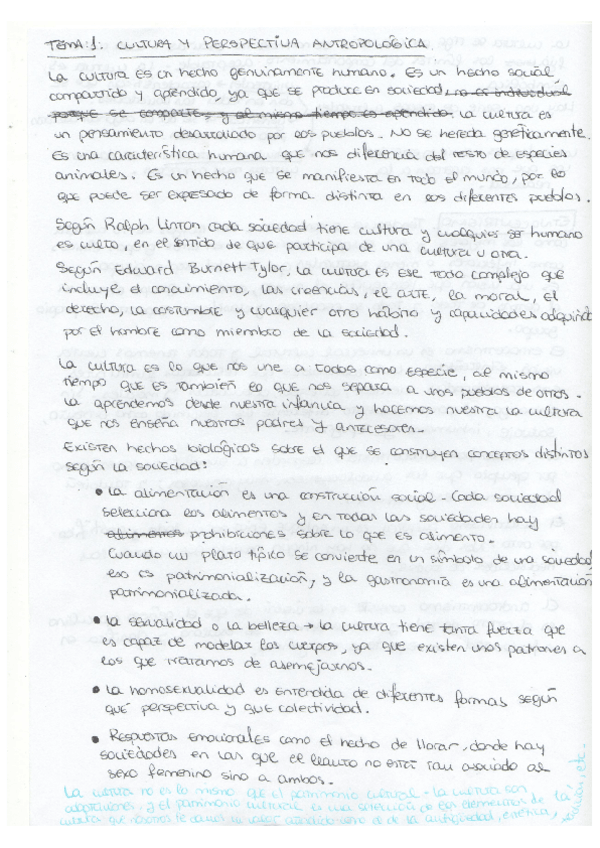 TEMA:1. CULTURA Y PERSPECTIVA ANTROPOLÓGICA.
La cultura es un hecho genuinamente humano. Es un hecho social,
compartido y aprendido, ya que se produce en sociedad, no es individual
porque se comparte, y al mismo tiempo es aprendido. La cultura es
un pensamiento desarrollado por los pueblos. No se hereda genéticamente.
Es una característica humana que nos diferencia del resto de especies
animales. Es un hecho que se manifiesta en todo el mundo, por lo
que puede ser expresado de forma distinta en los diferentes pueblos.
Según Ralph Linton cada sociedad tiene cultura y cualquier ser humano
es culto, en el sentido de que participa de una cultura u otra.
Según Edward Burnett Tylor, la cultura es ese todo complejo que
incluye el conocimiento, las creencias, el arte, la moral, el
derecho, la costumbre y cualquier otro hábito y capacidades adquirida
por el hombre como miembro de la sociedad.
La cultura es lo que nos une a todos como especie, al mismo
tiempo que es también lo que nos separa a unos pueblos de otros.
La aprendemos desde nuestra infancia y hacemos nuestra la cultura
que nos enseña nuestros padres y antecesores.
Existen hechos biológicos sobre el que se construyen conceptos distintos
según la sociedad:
• La alimentación es una construcción social. Cada sociedad
selecciona los alimentos y en todas las sociedades hay
alimentos prohibiciones sobre lo que es alimento.
Cuando un plato típico se convierte en un símbolo de una sociedad
eso es patrimonialización, y la gastronomía es una alimentación
patrimonializada.
• La sexualidad o la belleza → la cultura tiene tanta fuerza que
es capaz de modelar los cuerpos, ya que existen unos patrones a
los que tratamos de asemejarnos.
• La homosexualidad es entendida de diferentes formas según
qué perspectiva y qué colectividad.
• Respuestas emocionales como el hecho de llorar, donde hay
sociedades en las que el llanto no está tan asociado al
sexo femenino sino a ambos.
La cultura no es lo mismo que el patrimonio cultural. La cultura son
adaptaciones, y el patrimonio cultural es una selección de los elementos de la
cultura que nosotros le damos un valor añadido de la antigüedad, estética,
etc.